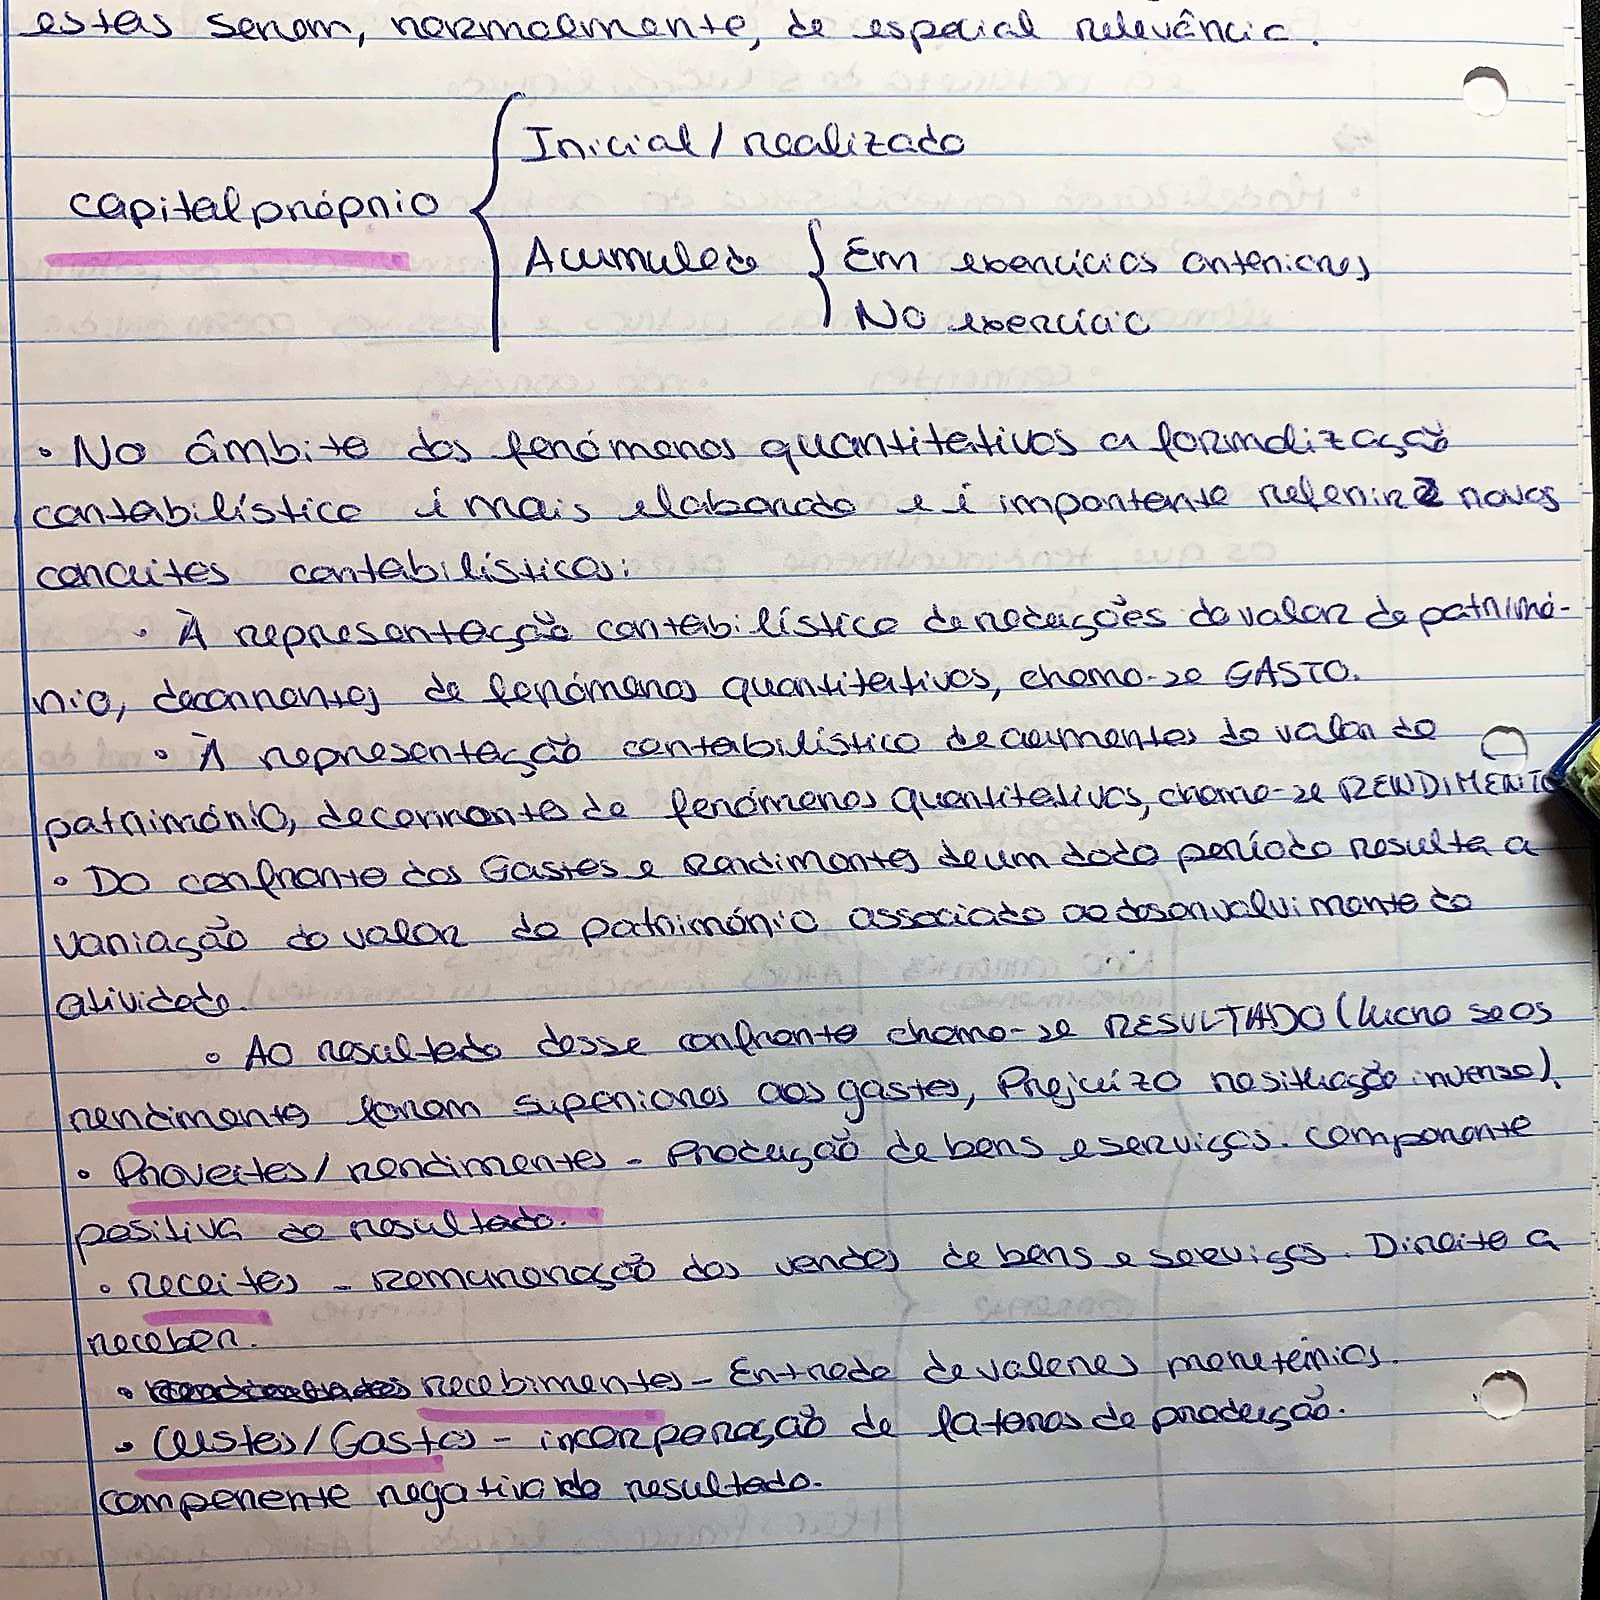 estas seriam, normalmente, de especial relevância.
Inicial / realizado
capital próprio
Acumulado { Em exercícios anteriores
No exercício
• No âmbito dos fenómenos quantitativos a formalização
contabilística é mais elaborada e é importante referir 2 novos
conceitos contabilísticos:
• À representação contabilística de reduções do valor do patrimó-
nio, decorrentes de fenómenos quantitativos, chama-se GASTO.
• À representação contabilística de aumentos do valor do
património, decorrentes de fenómenos quantitativos, chama-se RENDIMENTO
• Do confronto dos Gastos e Rendimentos de um dado período resulta a
variação do valor do património associado ao desenvolvimento da
atividade.
• Ao resultado desse confronto chama-se RESULTADO (lucro se os
rendimentos forem superiores aos gastos, Prejuízo na situação inversa).
• Proveitos / rendimentos - Produção de bens e serviços. componente
positiva do resultado.
• receitas - Remuneração das vendas de bens e serviços. Direito a
receber.
• recebimentos - Entrada de valores monetários.
• Custos / Gastos - incorporação de fatores de produção.
componente negativa do resultado.